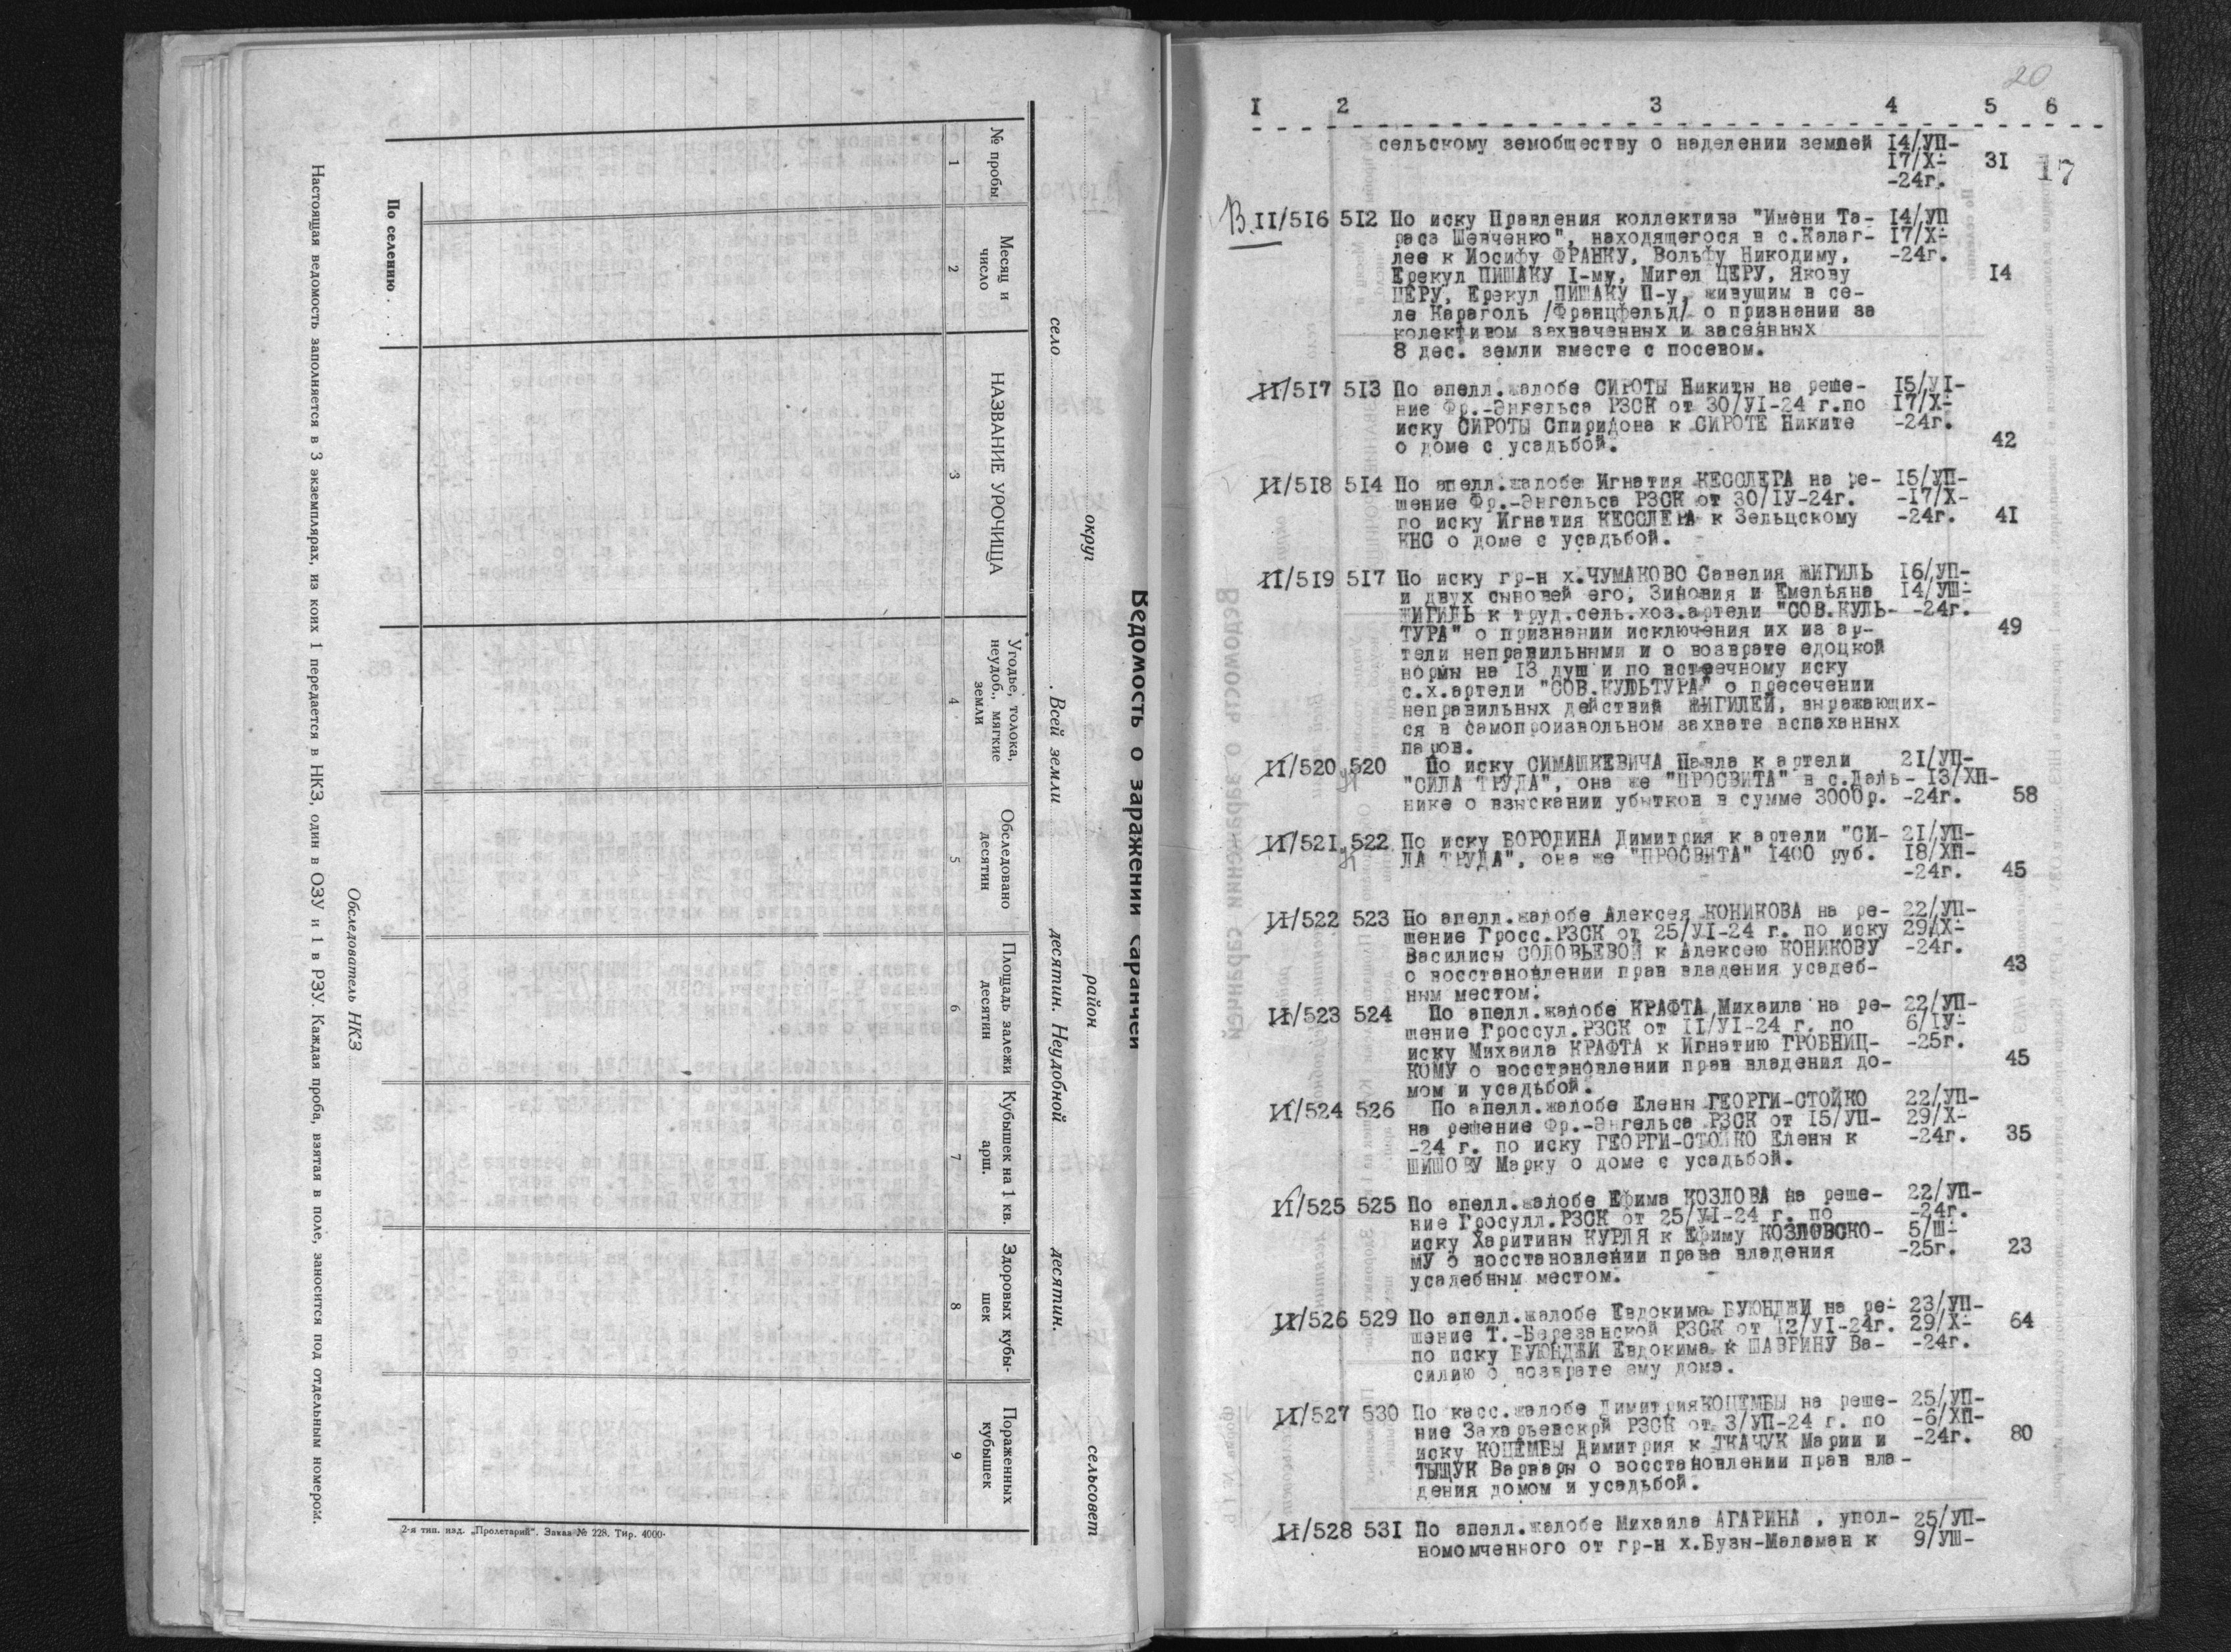 Ведомость о заражении саранчей
округ район сельсовет
село Всей земли десятин. Неудобной десятин.
№ пробы
Месяц и
число
НАЗВАНИЕ УРОЧИЩА
Угодье, толока,
неудоб., мягкие
земли
Обследовано
десятин
Площадь залежи
десятин
Кубышек на 1 кв.
арш.
Здоровых кубы-
шек
Пораженных
кубышек
1 2 3 4 5 6 7 8 9
По селению . . .
Обследователь НКЗ
Настоящая ведомость заполняется в 3 экземплярах, из коих 1 передается в НКЗ, один в ОЗУ и 1 в РЗУ. Каждая проба, взятая в поле, заносится под отдельным номером.
2-я тип. изд. „Пролетарий". Заказ № 228. Тир. 4000.
20
I 2 3 4 5 6
сельскому земобществу о наделении землей 14/УП-
17/Х- 31 17
-24г.
В. II/516 512 По иску Правления коллектива "Имени Та- 14/УП
раса Шевченко", находящегося в с.Калаг- 17/Х-
лее к Иосифу ФРАНКУ, Вольфу Никодиму, -24г.
Ерекул ПИШАКУ I-му, Мигел ЦЕРУ, Якову 14
ЦЕРУ, Ерекул ПИШАКУ П-у, живущим в се-
ле Караголь /Францфельд/ о признании за
колективом захваченных и засеянных
8 дес. земли вместе с посевом.
II/517 513 По апелл.жалобе СИРОТЫ Никиты на реше- 15/УI-
ние Фр.-Энгельса РЗСК от 30/УI-24 г.по 17/Х-
иску СИРОТЫ Спиридона к СИРОТЕ Никите -24г.
о доме с усадьбой. 42
II/518 514 По апелл.жалобе Игнатия КЕССЛЕРА на ре- 15/УП-
шение Фр.-Энгельса РЗСК от 30/IУ-24г. -17/Х-
по иску Игнатия КЕССЛЕРА к Зельцскому -24г. 41
КНС о доме с усадьбой.
II/519 517 По иску гр-н х.ЧУМАКОВО Савелия ЖИГИЛЬ 16/УП-
и двух сыновей его, Зиновия и Емельяна 14/УШ-
ЖИГИЛЬ к труд.сель.хоз.артели "СОВ.КУЛЬ- -24г.
ТУРА" о признании исключения их из ар- 49
тели неправильными и о возврате едоцкой
нормы на 13 душ и по встречному иску
с.х.артели "СОВ.КУЛЬТУРА" о пресечении
неправильных действий ЖИГИЛЕЙ, выражающих-
ся в самопроизвольном захвате вспаханных
паров.
II/520 520 По иску СИМАШКЕВИЧА Павла к артели 21/УП-
"СИЛА ТРУДА", она же "ПРОСВИТА" в с.Даль- 13/ХП-
нике о взыскании убытков в сумме 3000р. -24г. 58
II/521 522 По иску БОРОДИНА Димитрия к артели "СИ- 21/УП-
ЛА ТРУДА", она же "ПРОСВИТА" 1400 руб. 18/ХП-
-24г. 45
II/522 523 По апелл.жалобе Алексея КОНИКОВА на ре- 22/УП-
шение Гросс.РЗСК от 25/УI-24 г. по иску 29/Х-
Василисы СОЛОВЬЕВОЙ к Алексею КОНИКОВУ -24г.
о восстановлении прав владения усадеб- 43
ным местом.
II/523 524 По апелл.жалобе КРАФТА Михаила на ре- 22/УП-
шение Гроссул.РЗСК от II/УI-24 г. по 6/IУ-
иску Михаила КРАФТА к Игнатию ГРОБНИЦ- -25г.
КОМУ о восстановлении прав владения до- 45
мом и усадьбой.
II/524 526 По апелл.жалобе Елены ГЕОРГИ-СТОЙКО 22/УП-
на решение Фр.-Энгельса РЗСК от 15/УП- 29/Х-
-24 г. по иску ГЕОРГИ-СТОЙКО Елены к -24г. 35
ШИШОВУ Марку о доме с усадьбой.
II/525 525 По апелл.жалобе Ефима КОЗЛОВА на реше- 22/УП-
ние Гросулл.РЗСК от 25/УI-24 г. по -24г.
иску Харитины КУРЛЯ к Ефиму КОЗЛОВСКО- 5/Ш-
МУ о восстановлении права владения -25г. 23
усадебным местом.
II/526 529 По апелл.жалобе Евдокима БУЮНДЖИ на ре- 23/УП-
шение Т.-Березанской РЗСК от 12/УI-24г. 29/Х- 64
по иску БУЮНДЖИ Евдокима к ШАВРИНУ Ва- -24г.
силию о возврате ему дома.
II/527 530 По касс.жалобе ДимитрияКОЦЕМБЫ на реше- 25/УП-
ние Захарьевской РЗСК от 3/УП-24 г. по -6/ХП-
иску КОЦЕМБЫ Димитрия к ТКАЧУК Марии и -24г. 80
ТЫЩУК Варвары о восстановлении прав вла-
дения домом и усадьбой.
II/528 531 По апелл.жалобе Михаила АГАРИНА . упол- 25/УП-
номомченного от гр-н х.Бузы-Маламан к 9/УШ-